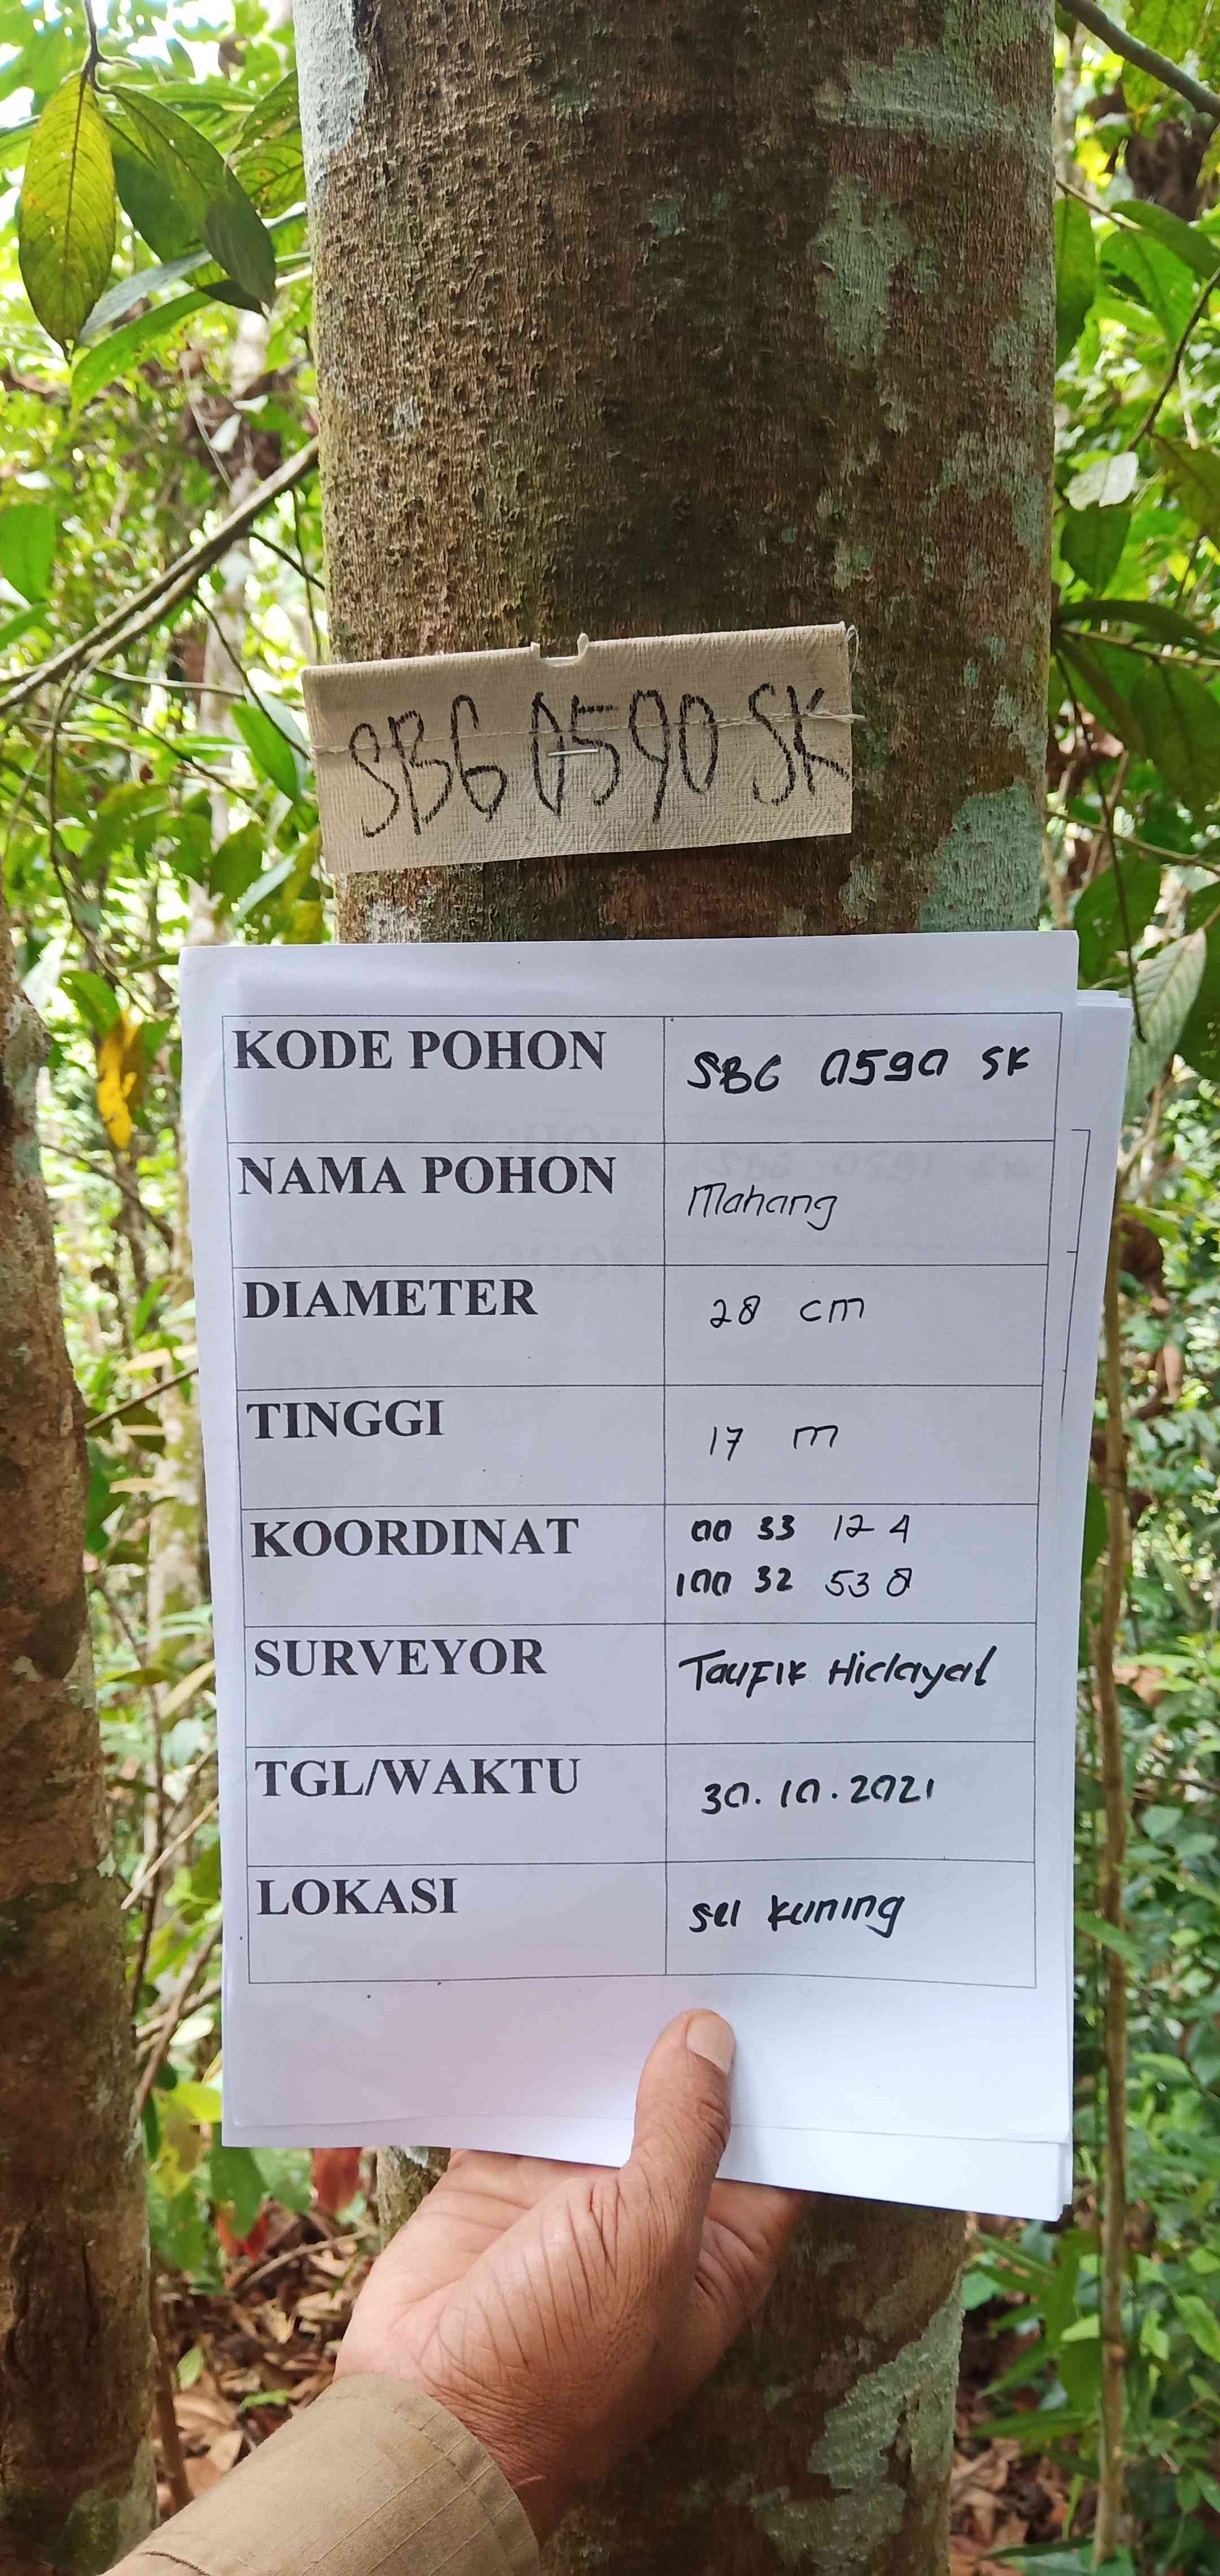 SBG 0590 SK
KODE POHON SBG 0590 SK
NAMA POHON Mahang
DIAMETER 28 cm
TINGGI 17 m
KOORDINAT 00 33 12 4
100 32 53 8
SURVEYOR Taufik Hidayat
TGL/WAKTU 30.10.2021
LOKASI sei kuning